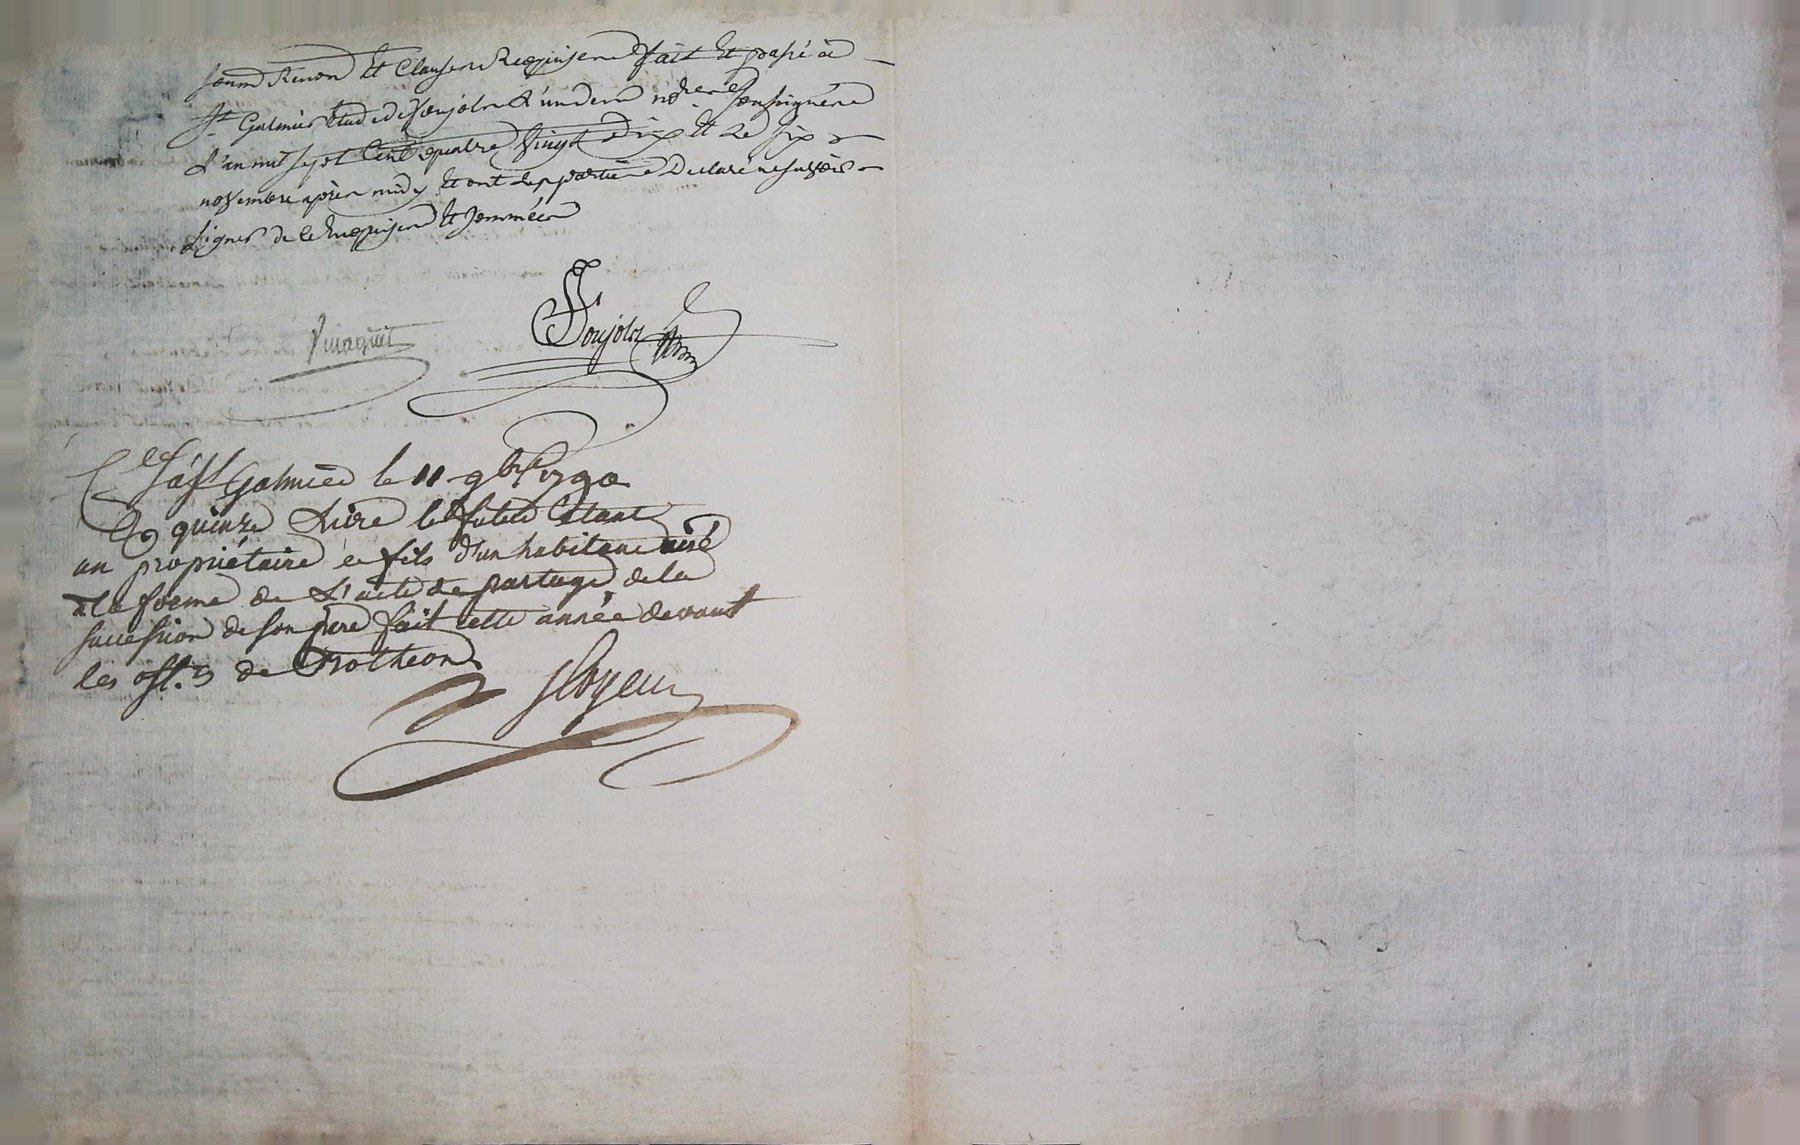 renon et clause requise fait et passé à
St Galmier étude de Ponjolin l'un des no.res soussignés
L'an mil sept cent quatre vingt dix et le six
novembre après midy et ont les parties declaré ne sçavoir
signer de ce requises et sommées
Ponjolin
Cé à St Galmier le 11 9bre 1790
R quinze Livre
un propriétaire et fils d'un habitant aisé
a la forme de L'acte de partage de la
succession de son père fait cette année devant
les de Rotheon